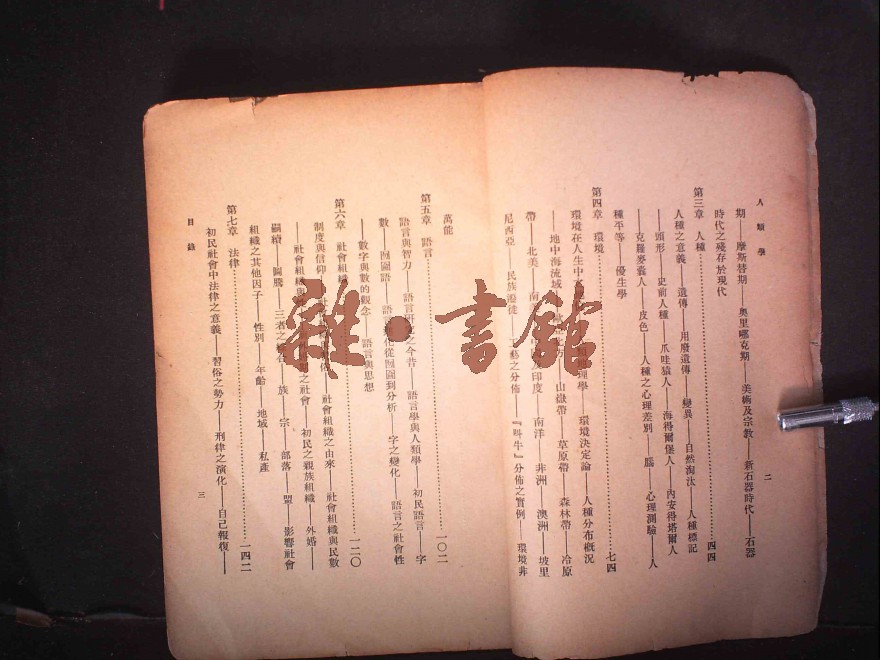 人類學
二
期——摩斯替期——奧里哪克期——美術及宗教——新石器時代——石器
時代之殘存於現代
第三章 人種……四四
人種之意義——遺傳——用廢遺傳——變異——自然淘汰——人種標記
——頭形——史前人種——爪哇猿人——海得爾堡人——內安得塔爾人
——克羅麥囊人——皮色——人種之心理差別——腦——心理測驗——人
種平等——優生學
第四章 環境……七四
環境在人生中 地理學——環境決定論——人種分布概況
——地中海流域 山嶽帶——草原帶——森林帶——冷原
帶——北美——南 及印度——南洋——非洲——澳洲——坡里
尼西亞——民族遷徙——工藝之分佈——『呌牛』分佈之實例——環境非
萬能
第五章 語言……一〇二
語言與智力——語言研究之今昔——語言學與人類學——初民語言——字
數——囫圇語——語言 化從囫圇到分析——字之變化——語言之社會性
——數字與數的觀念——語言與思想
第六章 社會組織……一二〇
制度與信仰——社 社會組織之由來——社會組織與民數
——社會組織與 之社會——初民之親族組織——外婚——
嗣續——圖騰——三者之 族——宗——部落——盟——影響社會
組織之其他因子——性別——年齡——地域——私產
第七章 法律……一四二
初民社會中法律之意義——習俗之勢力——刑律之演化——自己報復——
目錄
三
雜·書館